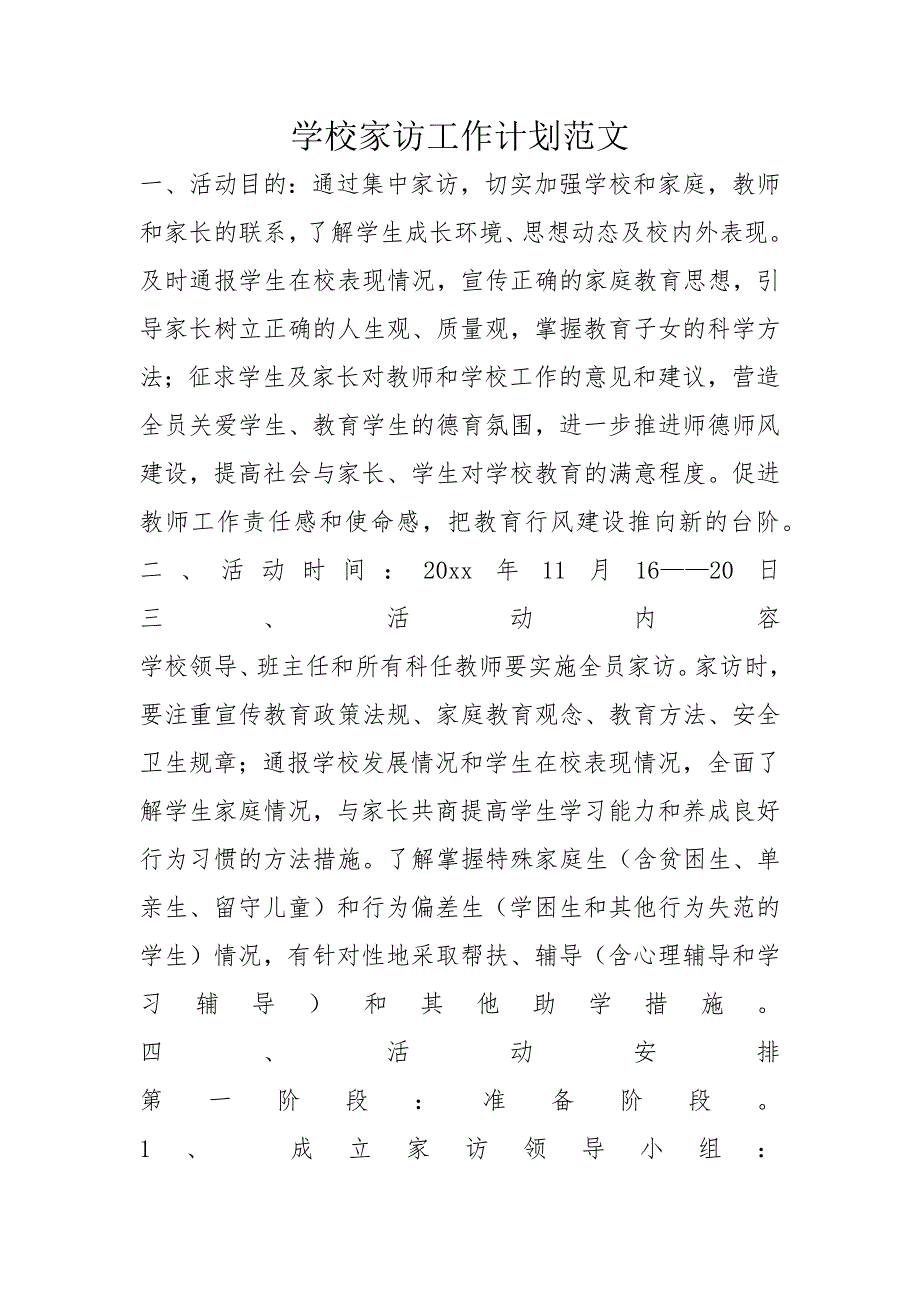 学校家访工作计划范文
一、活动目的：通过集中家访，切实加强学校和家庭，教师
和家长的联系，了解学生成长环境、思想动态及校内外表现。
及时通报学生在校表现情况，宣传正确的家庭教育思想，引
导家长树立正确的人生观、质量观，掌握教育子女的科学方
法；征求学生及家长对教师和学校工作的意见和建议，营造
全员关爱学生、教育学生的德育氛围，进一步推进师德师风
建设，提高社会与家长、学生对学校教育的满意程度。促进
教师工作责任感和使命感，把教育行风建设推向新的台阶。
二、活动时间：20xx 年 11 月 16——20 日
三、活动内容
学校领导、班主任和所有科任教师要实施全员家访。家访时，
要注重宣传教育政策法规、家庭教育观念、教育方法、安全
卫生规章；通报学校发展情况和学生在校表现情况，全面了
解学生家庭情况，与家长共商提高学生学习能力和养成良好
行为习惯的方法措施。了解掌握特殊家庭生（含贫困生、单
亲生、留守儿童）和行为偏差生（学困生和其他行为失范的
学生）情况，有针对性地采取帮扶、辅导（含心理辅导和学
习辅导）和其他助学措施。
四、活动安排
第一阶段：准备阶段。
1、 成立家访领导小组：